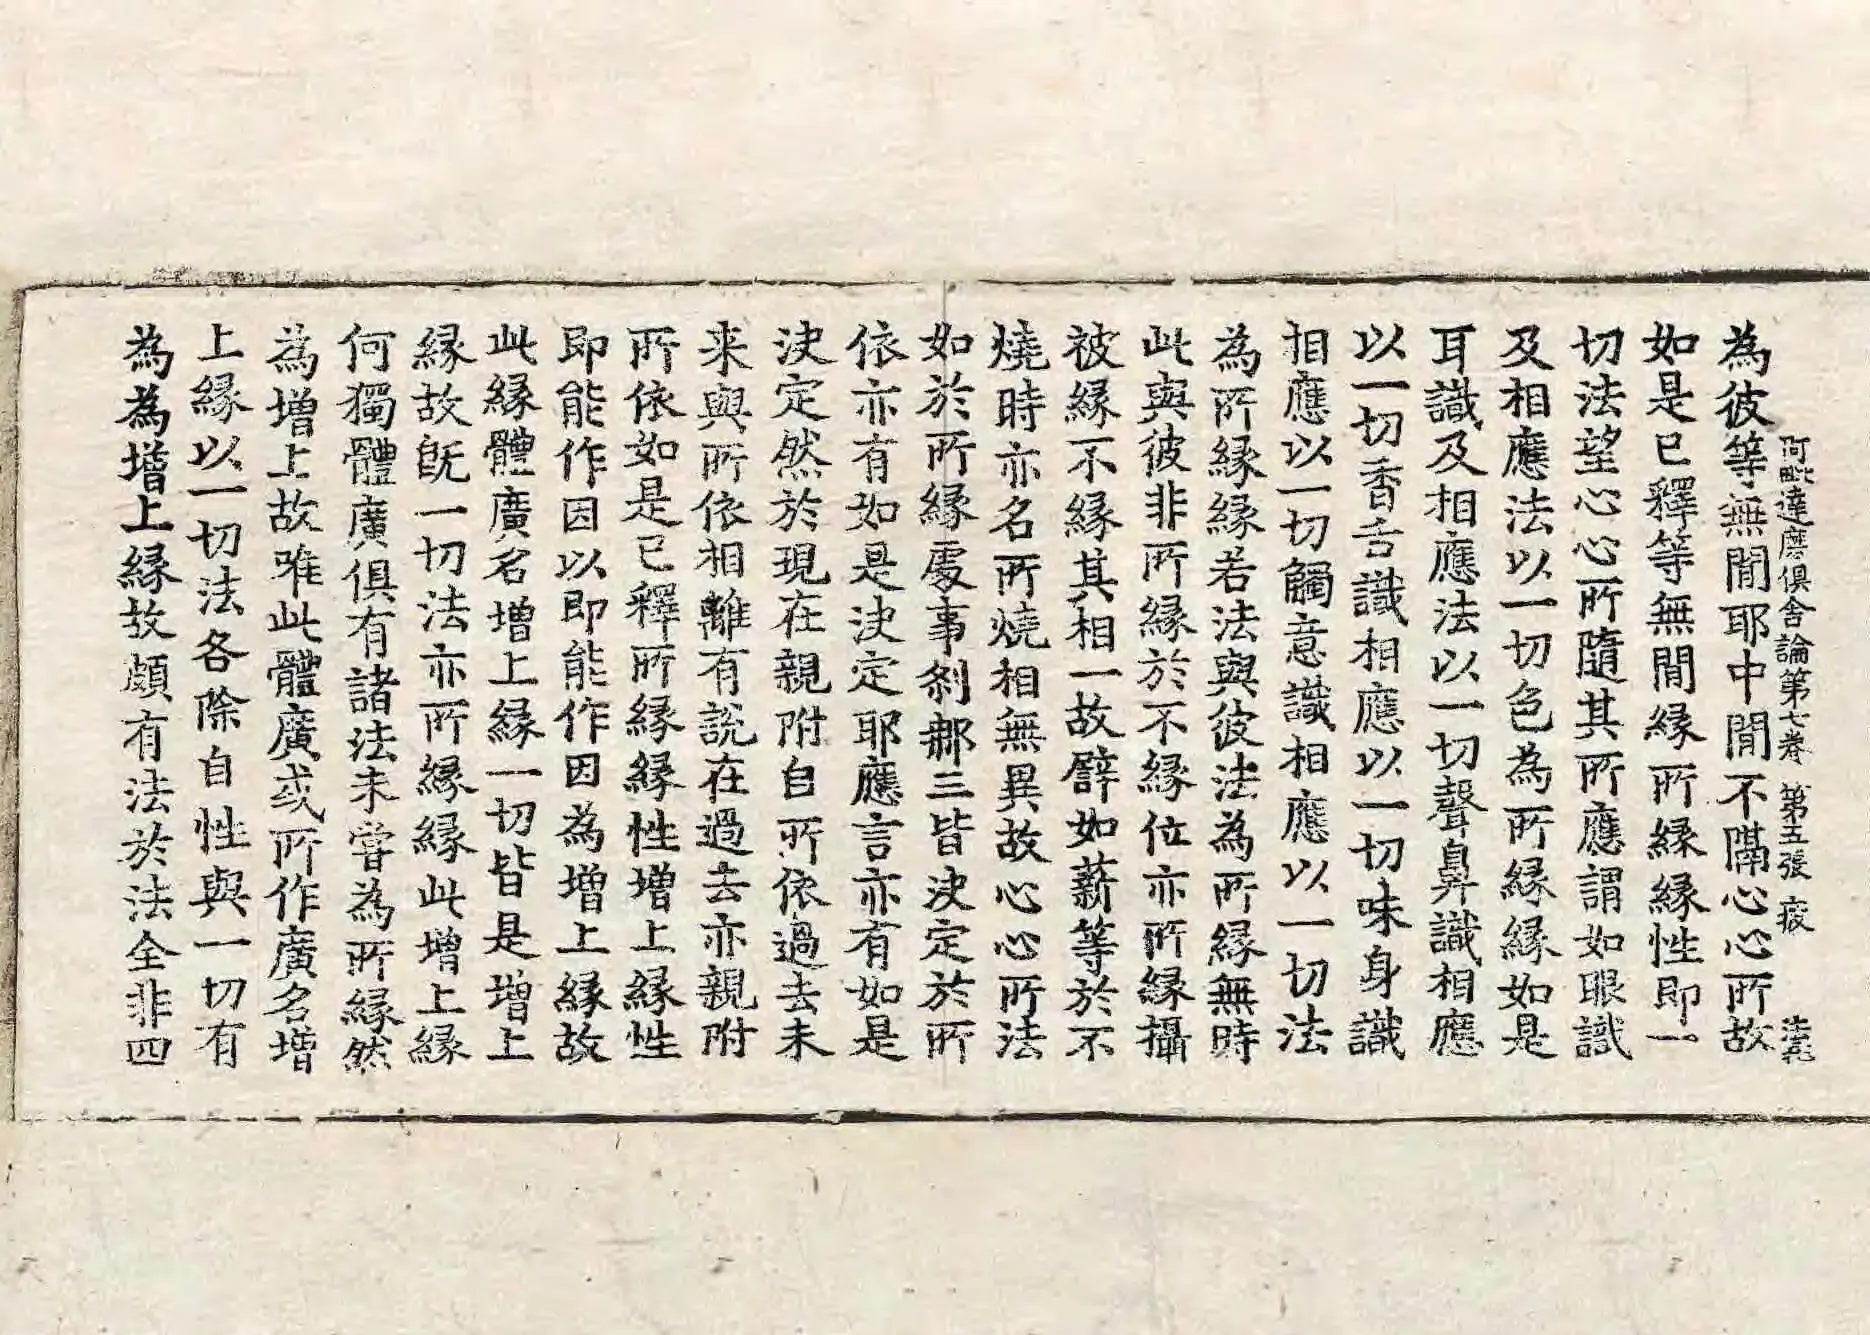 阿毗達磨俱舍論第七卷 第五張 疲
為彼等無間耶中間不隔心心所故
如是已釋等無間緣所緣緣性即一
切法望心心所隨其所應謂如眼識
及相應法以一切色為所緣緣如是
耳識及相應法以一切聲鼻識相應
以一切香舌識相應以一切味身識
相應以一切觸意識相應以一切法
為所緣緣若法與彼法為所緣無時
此與彼非所緣於不緣位亦所緣攝
被緣不緣其相一故譬如薪等於不
燒時亦名所燒相無異故心心所法
如於所緣處事剎那三皆決定於所
依亦有如是決定耶應言亦有如是
決定然於現在親附自所依過去未
来與所依相離有說在過去亦親附
所依如是已釋所緣緣性增上緣性
即能作因以即能作因為增上緣故
此緣體廣名增上緣一切皆是增上
緣故旣一切法亦所緣緣此增上緣
何獨體廣俱有諸法未嘗為所緣然
為增上故唯此體廣或所作廣名增
上緣以一切法各除自性與一切有
為為增上緣故頗有法於法全非四